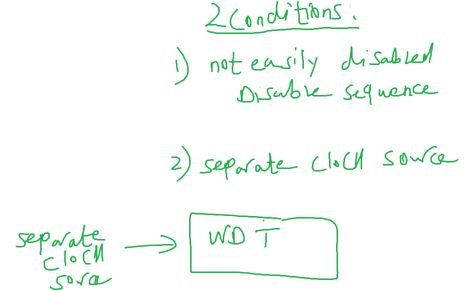 2 Conditions.
1) not easily disabled
Disable sequence
2) separate clock source
separate
clock
sorce
WDT